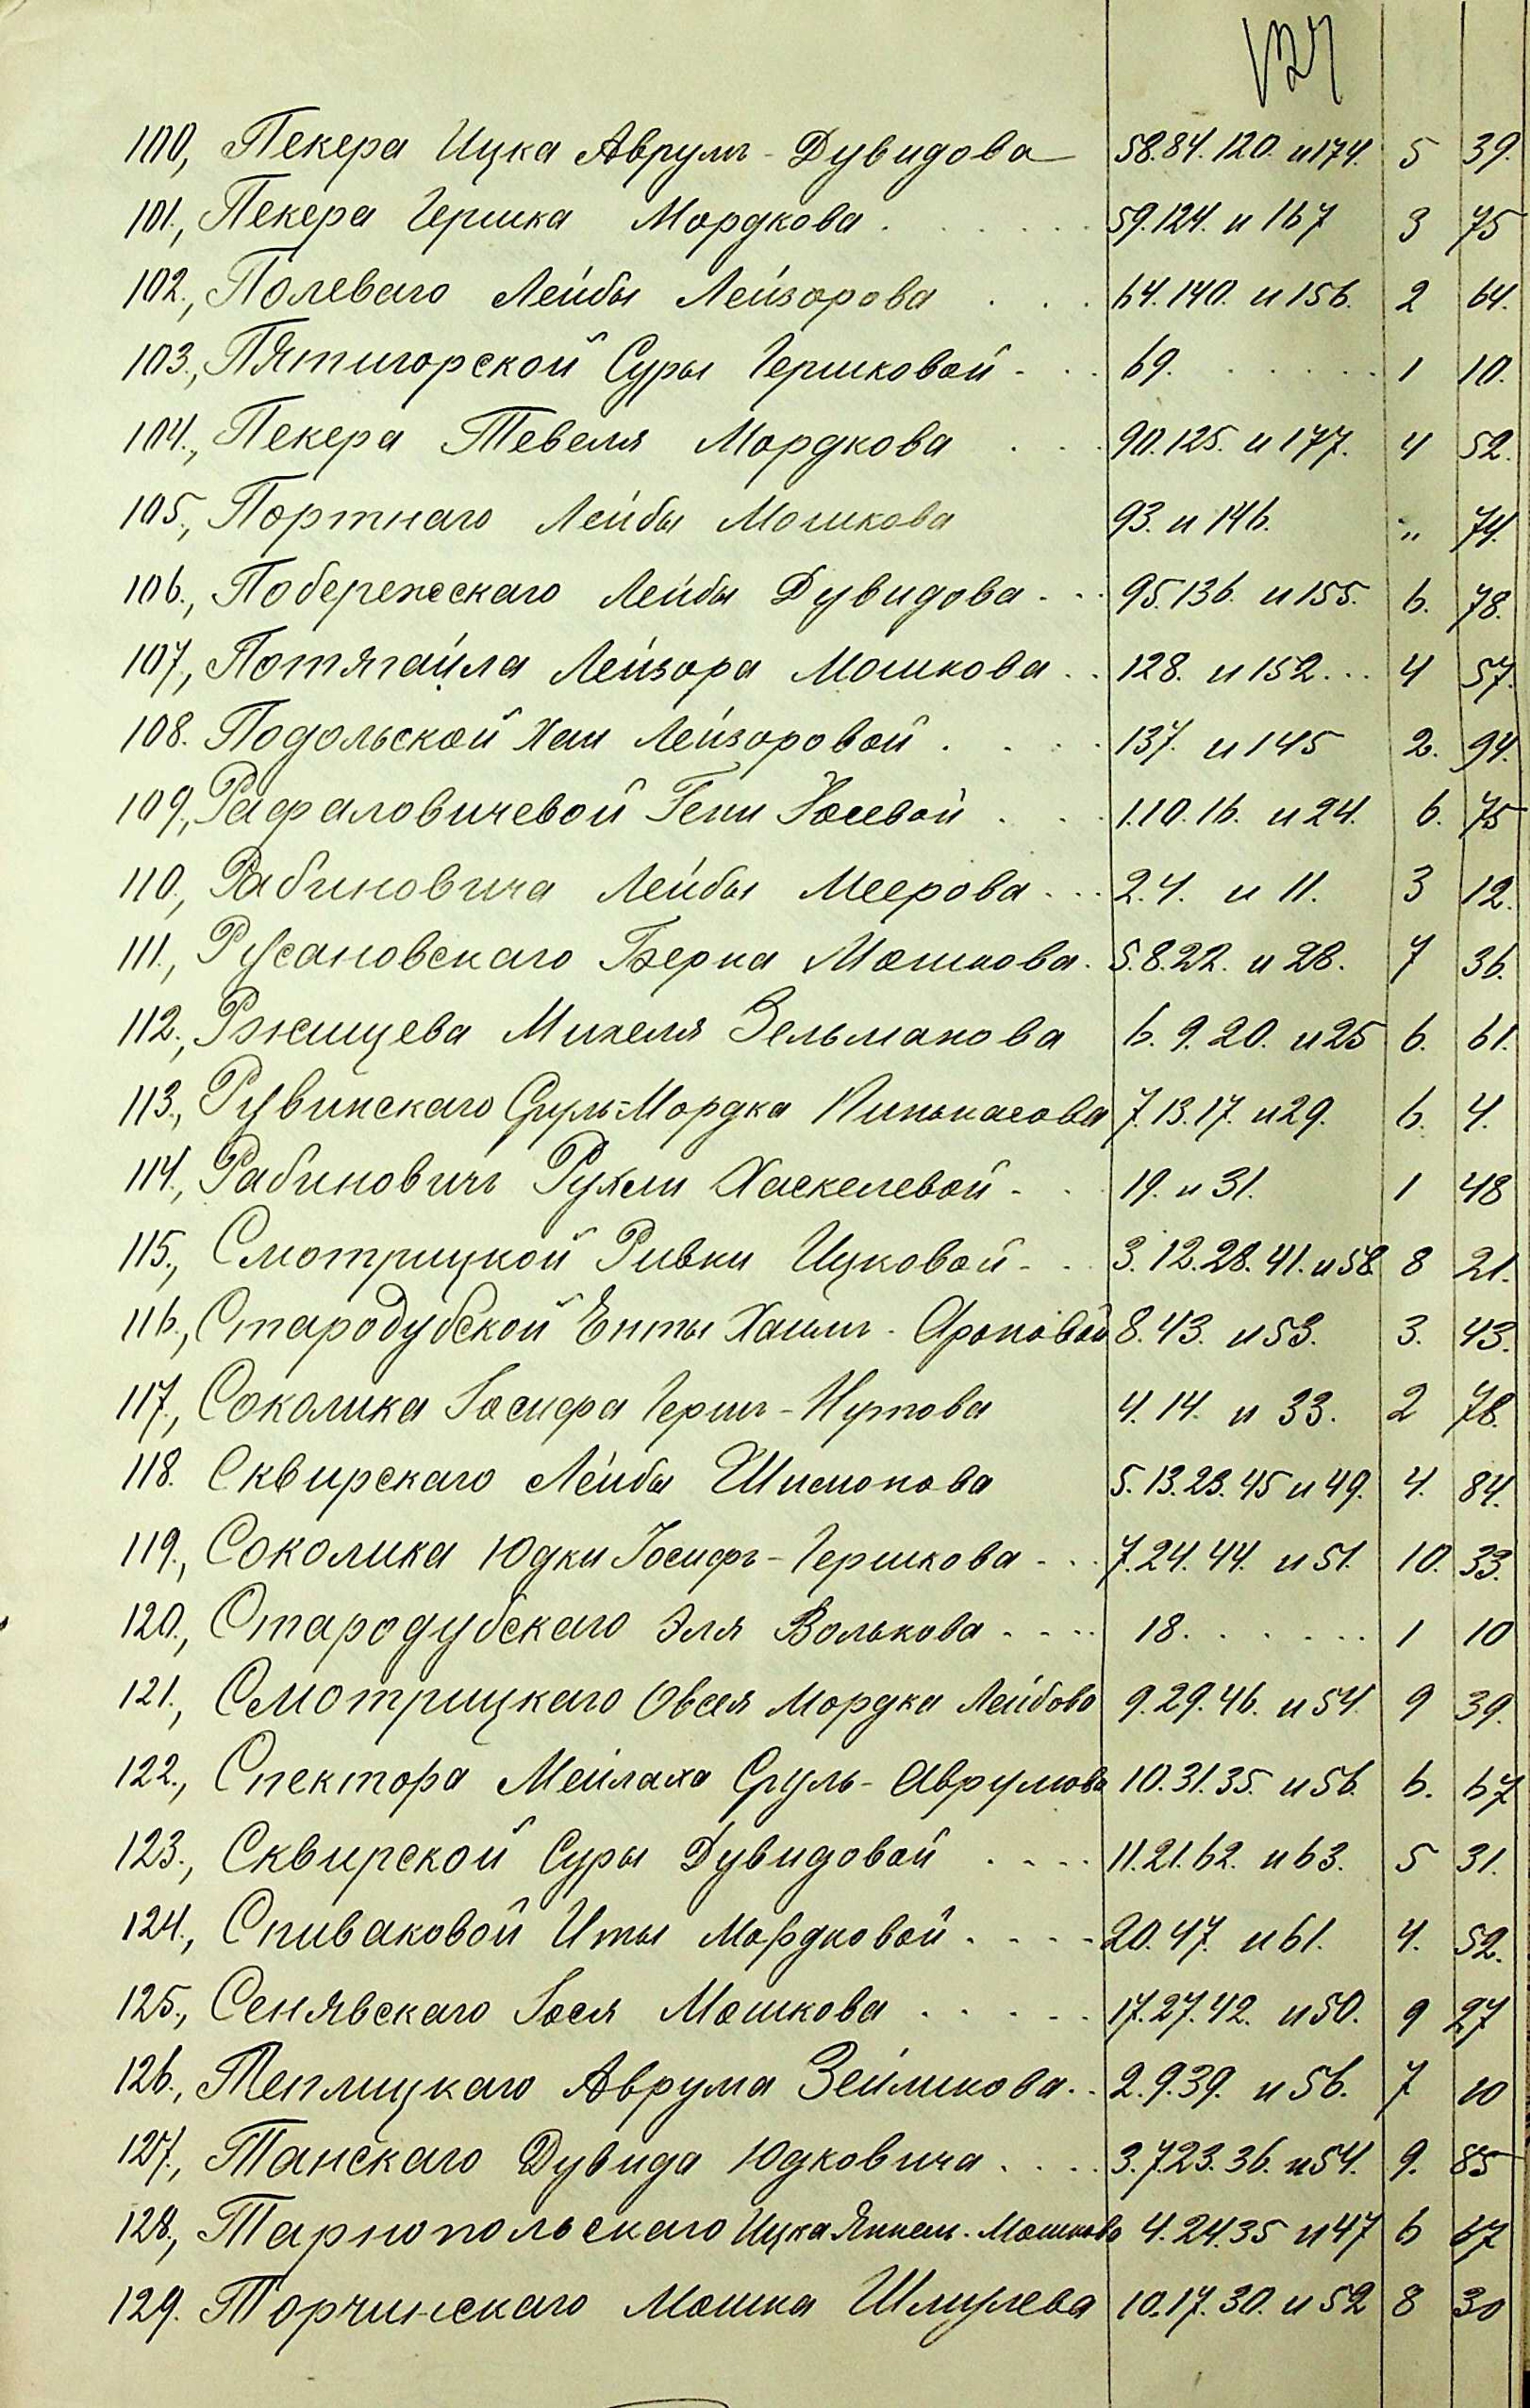 124
100., Пекера Ицка Аврумъ-Дувидова 58.84.120. и 174. 5 39.
101., Пекера Гершка Мордкова . . . . . . 59.124. и 167 3 75
102., Полеваго Лейбы Лейзорова . . . 64.140. и 156. 2 64.
103., Пятигорской Суры Гершковой . . . 69. . . . . . . 1 10.
104., Пекера Тевеля Мордкова . . . 90.125. и 177. 4 52.
105., Портнаго Лейбы Мошкова 93. и 146. „ 74.
106., Побережскаго Лейбы Дувидова . . . 95.136. и 155. 6. 78.
107., Потягайла Лейзора Мошкова . . 128. и 152. . . 4 57.
108. Подольской Хаи Лейзоровой . . . . 137. и 145 2. 94.
109., Рафаловичевой Гени Іосевой . . . 1.10.16. и 24. 6. 75
110., Рабиновича Лейбы Меерова . . . 2.4. и 11. 3 12.
111., Русановскаго Берка Мошкова. 5.8.22. и 28. 7 36.
112., Ржищева Михеля Зельманова 6.9.20. и 25 6. 61.
113., Рувинскаго Сруль-Мордка Пинькасова 7.13.17. и 29. 6. 4.
114., Рабиновичъ Рухли Хаскелевой . . . 19. и 31. 1 48
115., Смотрицкой Ривки Ицковой . . . 3.12.28.41. и 58. 8 21.
116., Стародубской Енты Хаимъ-Ароновой 8.43. и 53. 3. 43.
117., Соколика Іосифа Гершъ-Нутова 4.14. и 33. 2 78.
118. Сквирскаго Лейбы Шимонова 5.13.23.45 и 49. 4. 84.
119., Соколика Юдки Іосифъ-Гершкова . . . 7.24.44. и 51. 10. 33.
120., Стародубскаго Эля Волькова . . . . 18. . . . . . . 1 10
121., Смотрицкаго Овсея Мордка Лейбова 9.29.46. и 54. 9 39.
122., Спектора Мейлаха Сруль-Аврумова 10.31.35. и 56. 6. 67
123., Сквирской Суры Дувидовой . . . . 11.21.62. и 63. 5 31.
124., Спиваковой Иты Мордковой . . . . 20.47. и 61. 4. 52.
125., Сенявскаго Іося Мошкова . . . . . 17.27.42. и 50. 9 27
126., Теплицкаго Аврума Зейликова . . 2.9.39. и 56. 7 10
127., Танскаго Дувида Юдковича . . . . 3.7.23.36. и 54. 9. 85
128., Тарнопольскаго Ицка Янкель-Мошкова 4.24.35 и 47 6 67
129. Торчинскаго Мошка Шмулева 10.17.30. и 52 8 30